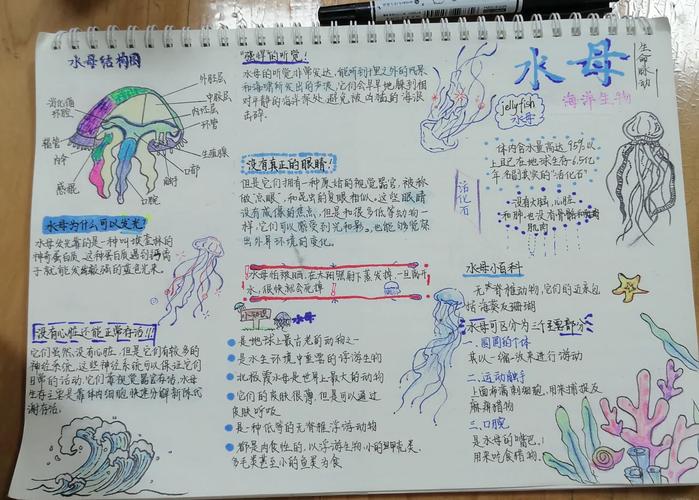 水母结构图
外胚层
中胶层
内胚层
环管
生殖腺
口部
触手
口腕
感棍
内伞
辐管
消化循
环腔
水母为什么可以发光!
水母发光靠的是一种叫埃奎林的
神奇蛋白质。这种蛋白质遇到钙离
子就能发出较强的蓝色光来。
没有心脏还能正常存活!!!
它们虽然没有心脏,但是它们有较多的
神经系统,这些神经系统可以保证它们
日常的活动。它们靠视觉器官存活,水母
生存主宰是靠体内细胞快速分解新陈代
谢存活。
"强悍的听觉!
水母的听觉非常发达,能听到十里之外的风暴
和海啸所发出的声波,它们会早早地躲到相
对平静的海洋深处,避免被凶猛的海浪
击碎。
没有真正的眼睛!
但是它们拥有一种原始的视觉器官,被称
做"点眼",和昆虫的复眼相似。这些眼睛
没有成像的焦点,但是和很多低等动物一
样,它们可以感受到光和影。也能够觉察
出外界环境的变化。
水母怕被晒,在太阳照射下蒸发掉,一旦离开
水,很快就会死掉
小知识
水母
是地球上最古老的动物之一
是水生环境中重要的浮游生物
北极霞水母是世界上最大的动物
它们的皮肤很薄,但是可以通过
皮肤呼吸
是一种低等的无脊椎浮游动物
都是肉食性的,以浮游生物,小的甲壳类,
多毛类甚至小的鱼类为食
水母
jellyfish
水母
海洋生物
生命脉动
活化石
体内含水量高达95%以
上且已在地球生存6.5亿
年名副其实的"活化石"
没有大脑,心脏
和肺,也没有骨骼和
肌肉
水母小百科
无脊椎动物,它们的近亲包
括海葵及珊瑚
水母可区分为三个主要部分
一.圆圆的伞体
其以一缩一放来进行游动
二.运动触手
上面布满刺细胞,用来捕捉及
麻痹猎物
三.口腕
是水母的嘴巴,
用来吃食猎物.